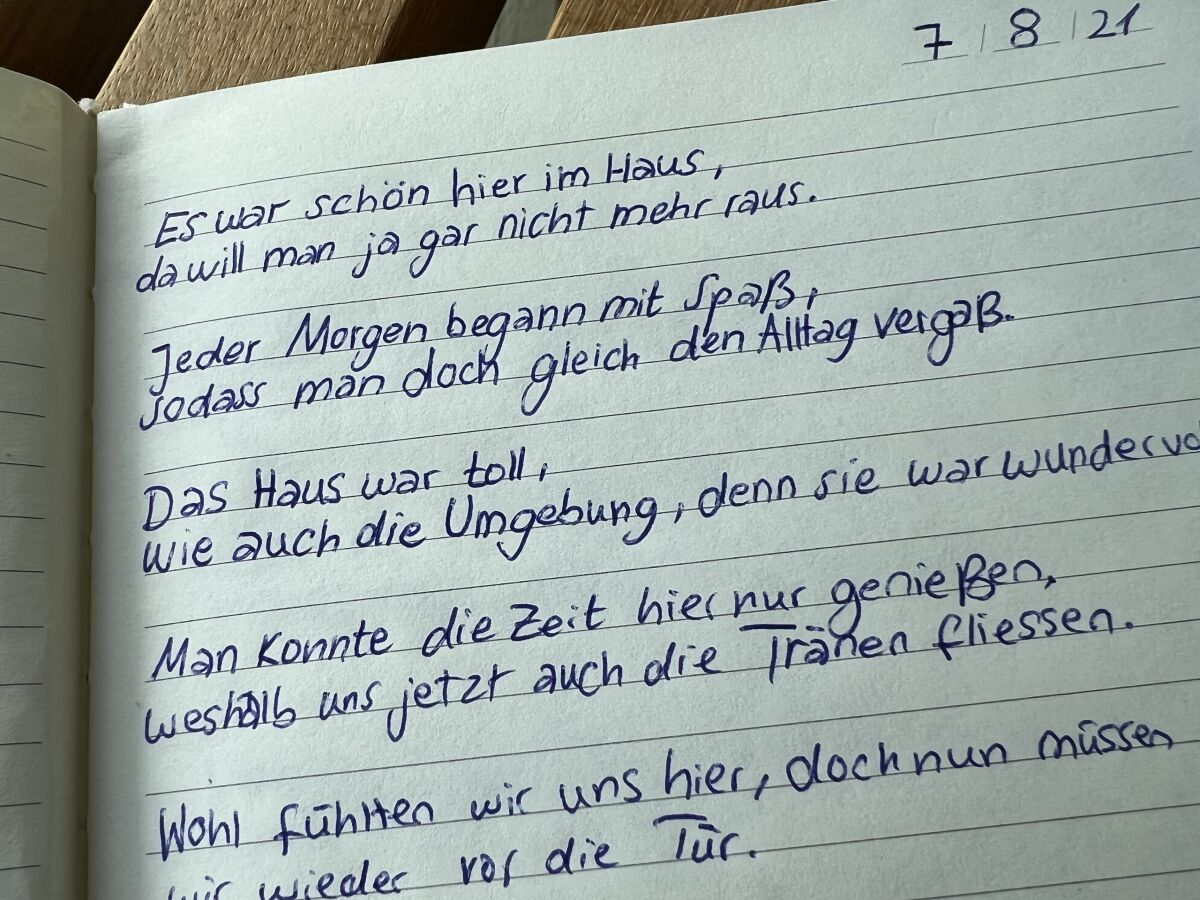 7 | 8 | 21
Es war schön hier im Haus,
da will man ja gar nicht mehr raus.
Jeder Morgen begann mit Spaß,
sodass man doch gleich den Alltag vergaß.
Das Haus war toll,
wie auch die Umgebung, denn sie war
Man konnte die Zeit hier nur genießen,
weshalb uns jetzt auch die Tränen fliessen.
Wohl fühlten wir uns hier, doch nun müssen
wir wieder vor die Tür.